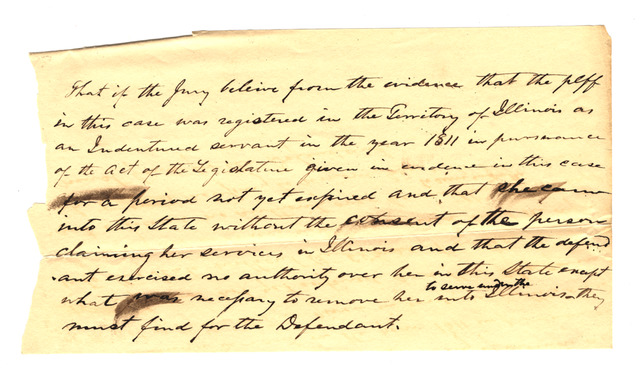 That if the Jury beleive from the evidence that the plff
in this case was registered in the Territory of Illinois as
an Indentured servant in the year 1811 in pursuance
of the Act of the Legislature given in evidence in this case
for a period not yet expired and that she came
into this State without the consent of the person
claiming her services in Illinois and that the defend
ant exercised no authority over her in this State except
to serve under the
what was necessary to remove her into Illinois they
must find for the Defendant.